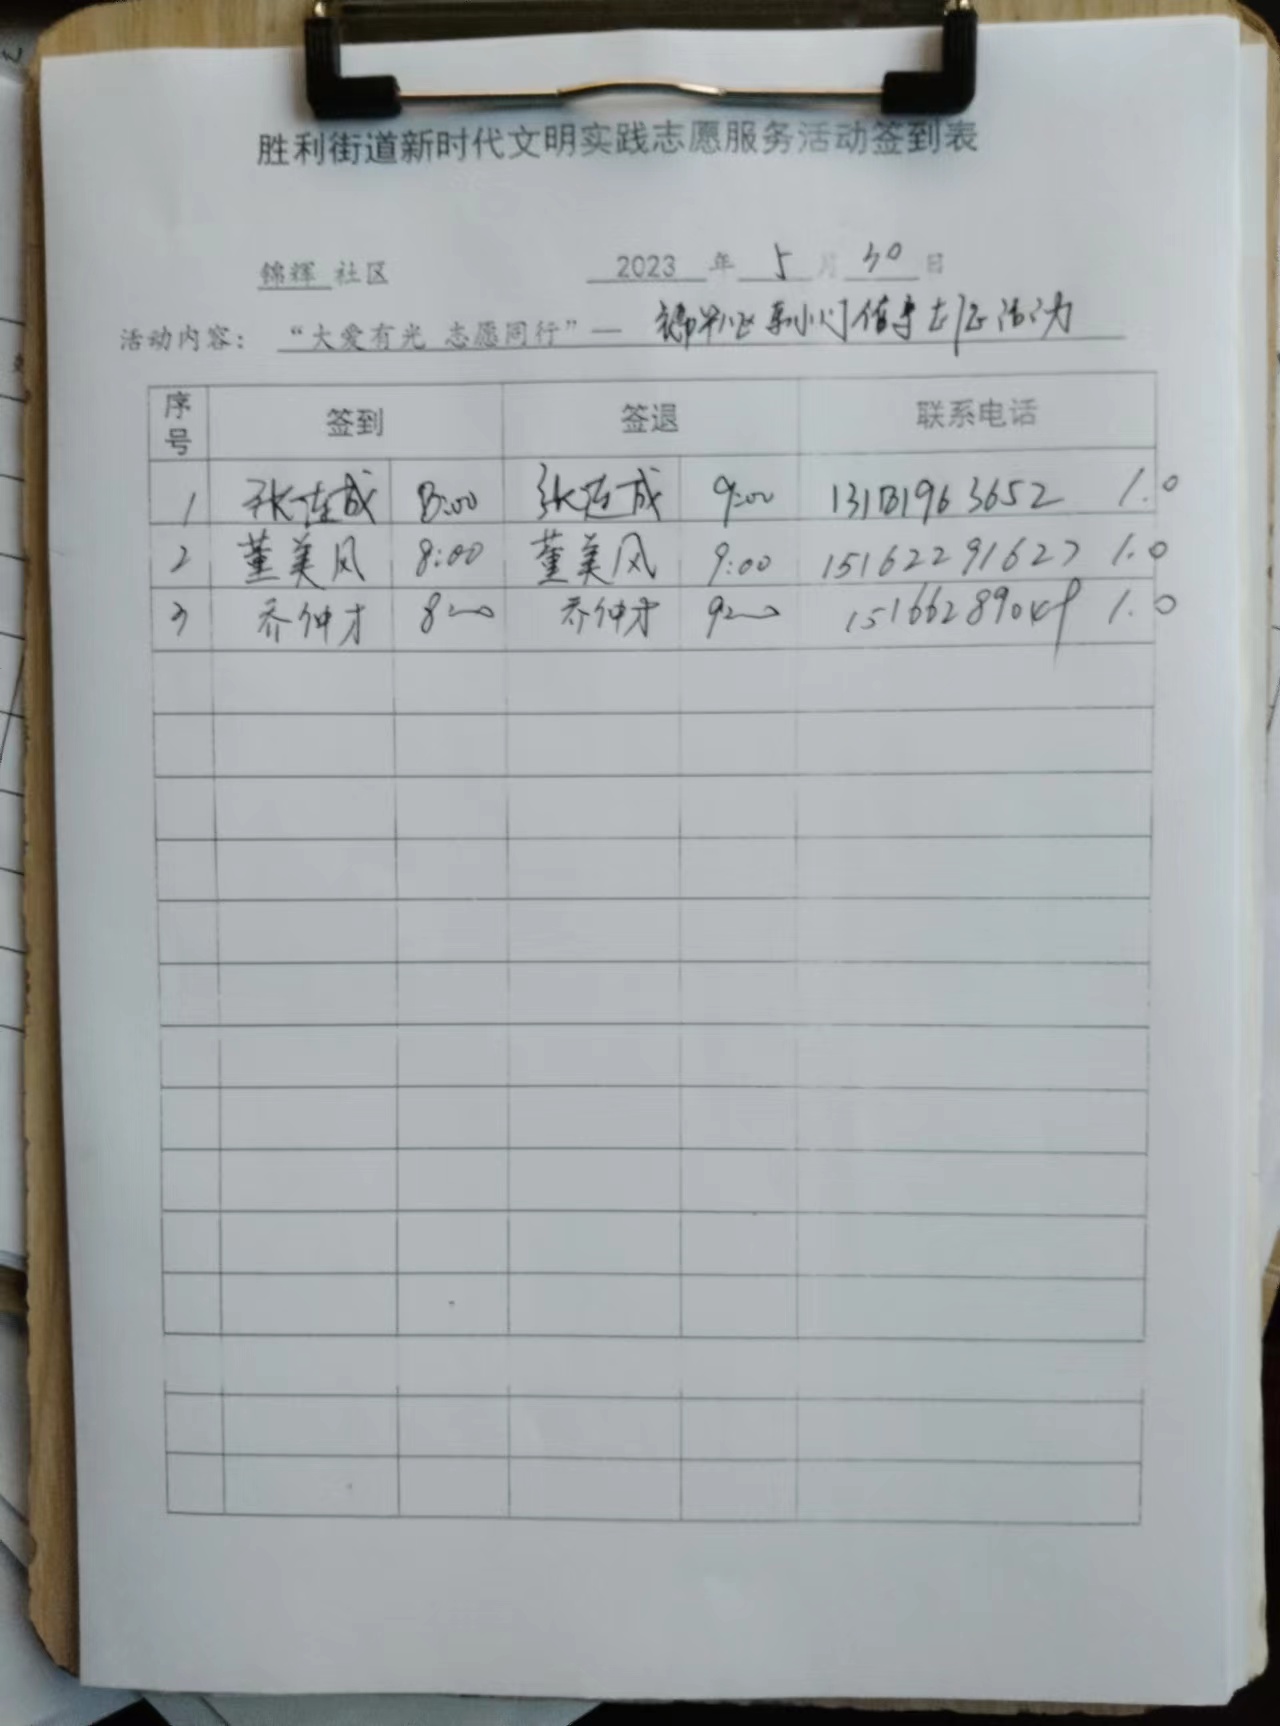 胜利街道新时代文明实践志愿服务活动签到表
锦辉 社区 2023 年 5 月 30 日
活动内容： “大爱有光 志愿同行”—
序号 签到 签退 联系电话
1 张连成 8:00 张连成 9:00 1.0
2 董美风 8:00 董美风 9:00 15162291627 1.0
3 乔仲才 8:00 乔仲才 9:00 1.0